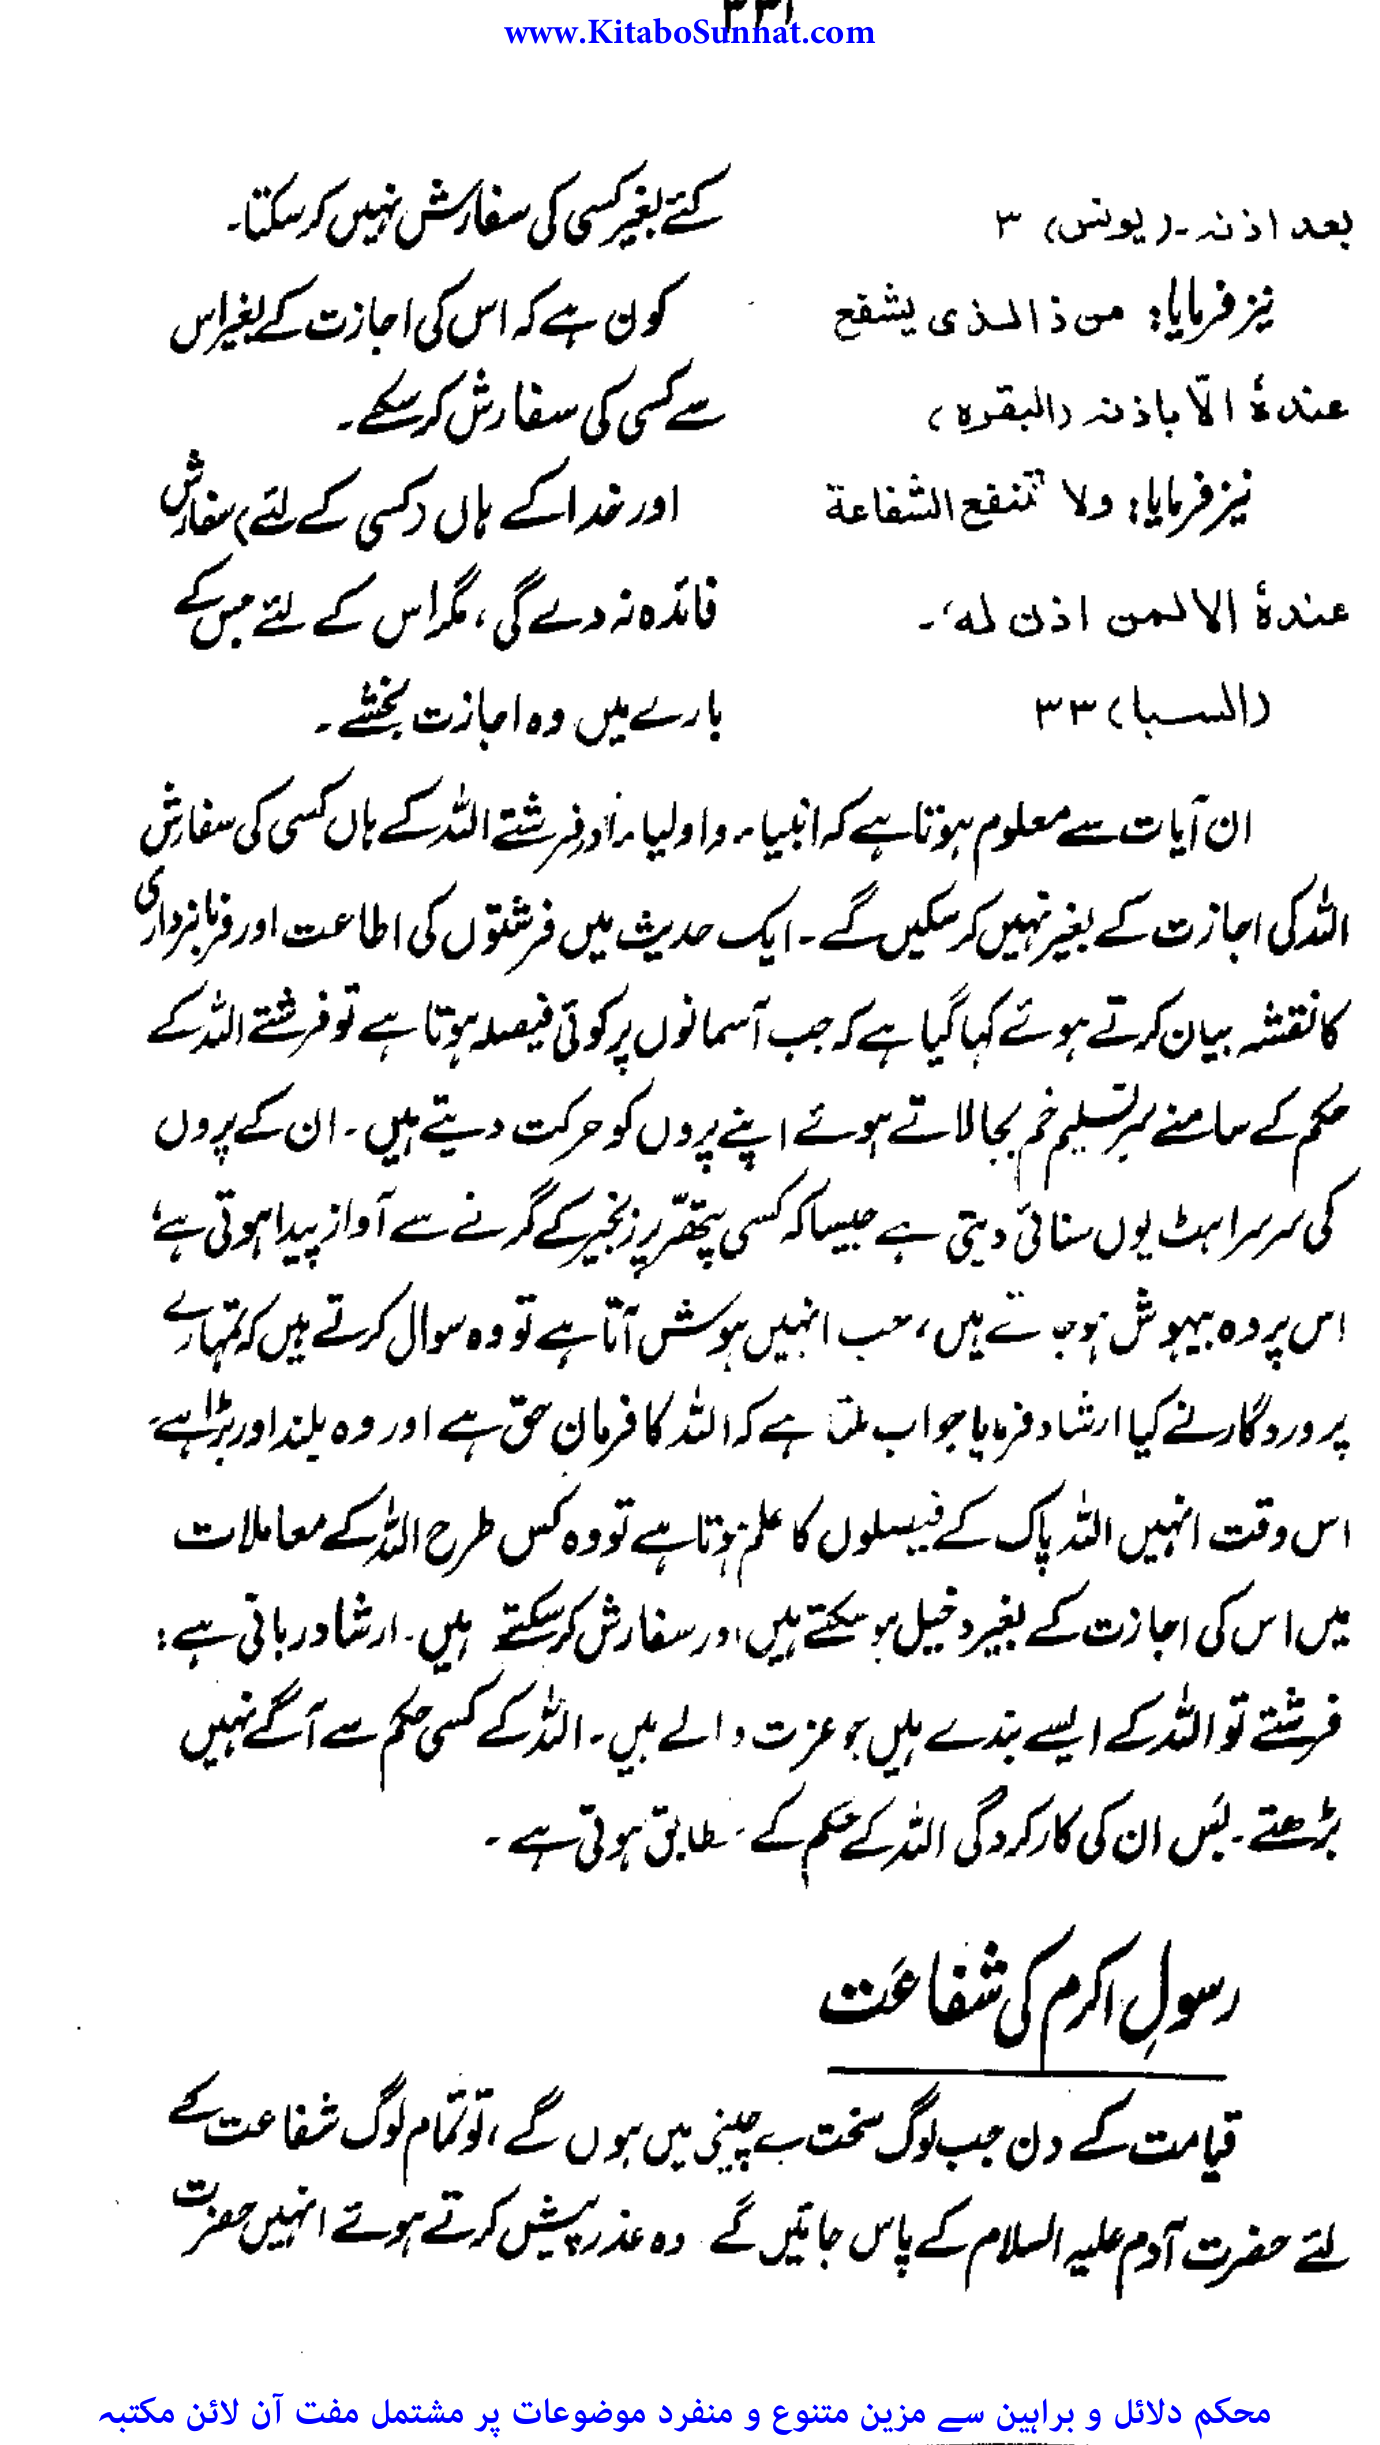 ۳۳۱
www.KitaboSunnat.com
بعد اذنہ۔ (یونس) ۳
کئے بغیر کسی کی سفارش نہیں کر سکتا۔
نیز فرمایا: من ذا الذی یشفع
کون ہے کہ اس کی اجازت کے بغیر اس
عندہٗ الّا باذنہ (البقرہ)
سے کسی کی سفارش کر سکے۔
نیز فرمایا: ولا تنفع الشفاعة
اور خدا کے ہاں (کسی کے لئے) سفارش
عندہٗ الا لمن اذن لہ،۔
فائدہ نہ دے گی، مگر اس کے لئے جس کے
(السبا) ۳۳
بارے میں وہ اجازت بخشے۔
ان آیات سے معلوم ہوتا ہے کہ انبیاء و اولیاء اور فرشتے اللہ کے ہاں کسی کی سفارش
اللہ کی اجازت کے بغیر نہیں کر سکیں گے۔ ایک حدیث میں فرشتوں کی اطاعت اور فرمانبرداری
کا نقشہ بیان کرتے ہوئے کہا گیا ہے کہ جب آسمانوں پر کوئی فیصلہ ہوتا ہے تو فرشتے اللہ کے
حکم کے سامنے سر تسلیم خم بجا لاتے ہوئے اپنے پروں کو حرکت دیتے ہیں۔ ان کے پروں
کی سرسراہٹ یوں سنائی دیتی ہے جیسا کہ کسی پتھّر پر زنجیر کے گرنے سے آواز پیدا ہوتی ہے؛
اس پر وہ بیہوش ہو جاتے ہیں، جب انہیں ہوش آتا ہے تو وہ سوال کرتے ہیں کہ تمہارے
پروردگار نے کیا ارشاد فرمایا جواب ملتا ہے کہ اللہ کا فرمان حق ہے اور وہ بلند اور بڑا ہے۔
اس وقت انہیں اللہ پاک کے فیصلوں کا علم ہوتا ہے تو وہ کس طرح اللہ کے معاملات
میں اس کی اجازت کے بغیر دخیل ہو سکتے ہیں اور سفارش کر سکتے ہیں۔ ارشاد ربانی ہے:
فرشتے تو اللہ کے ایسے بندے ہیں جو عزت والے ہیں۔ اللہ کے کسی حکم سے آگے نہیں
بڑھتے۔ بس ان کی کارکردگی اللہ کے حکم کے مطابق ہوتی ہے۔
رسولِ اکرم کی شفاعَت
قیامت کے دن جب لوگ سخت بے چینی میں ہوں گے، تو تمام لوگ شفاعت کے
لئے حضرت آدم علیہ السلام کے پاس جائیں گے وہ عذر پیش کرتے ہوئے انہیں حضرت
محکم دلائل و براہین سے مزین متنوع و منفرد موضوعات پر مشتمل مفت آن لائن مکتبہ